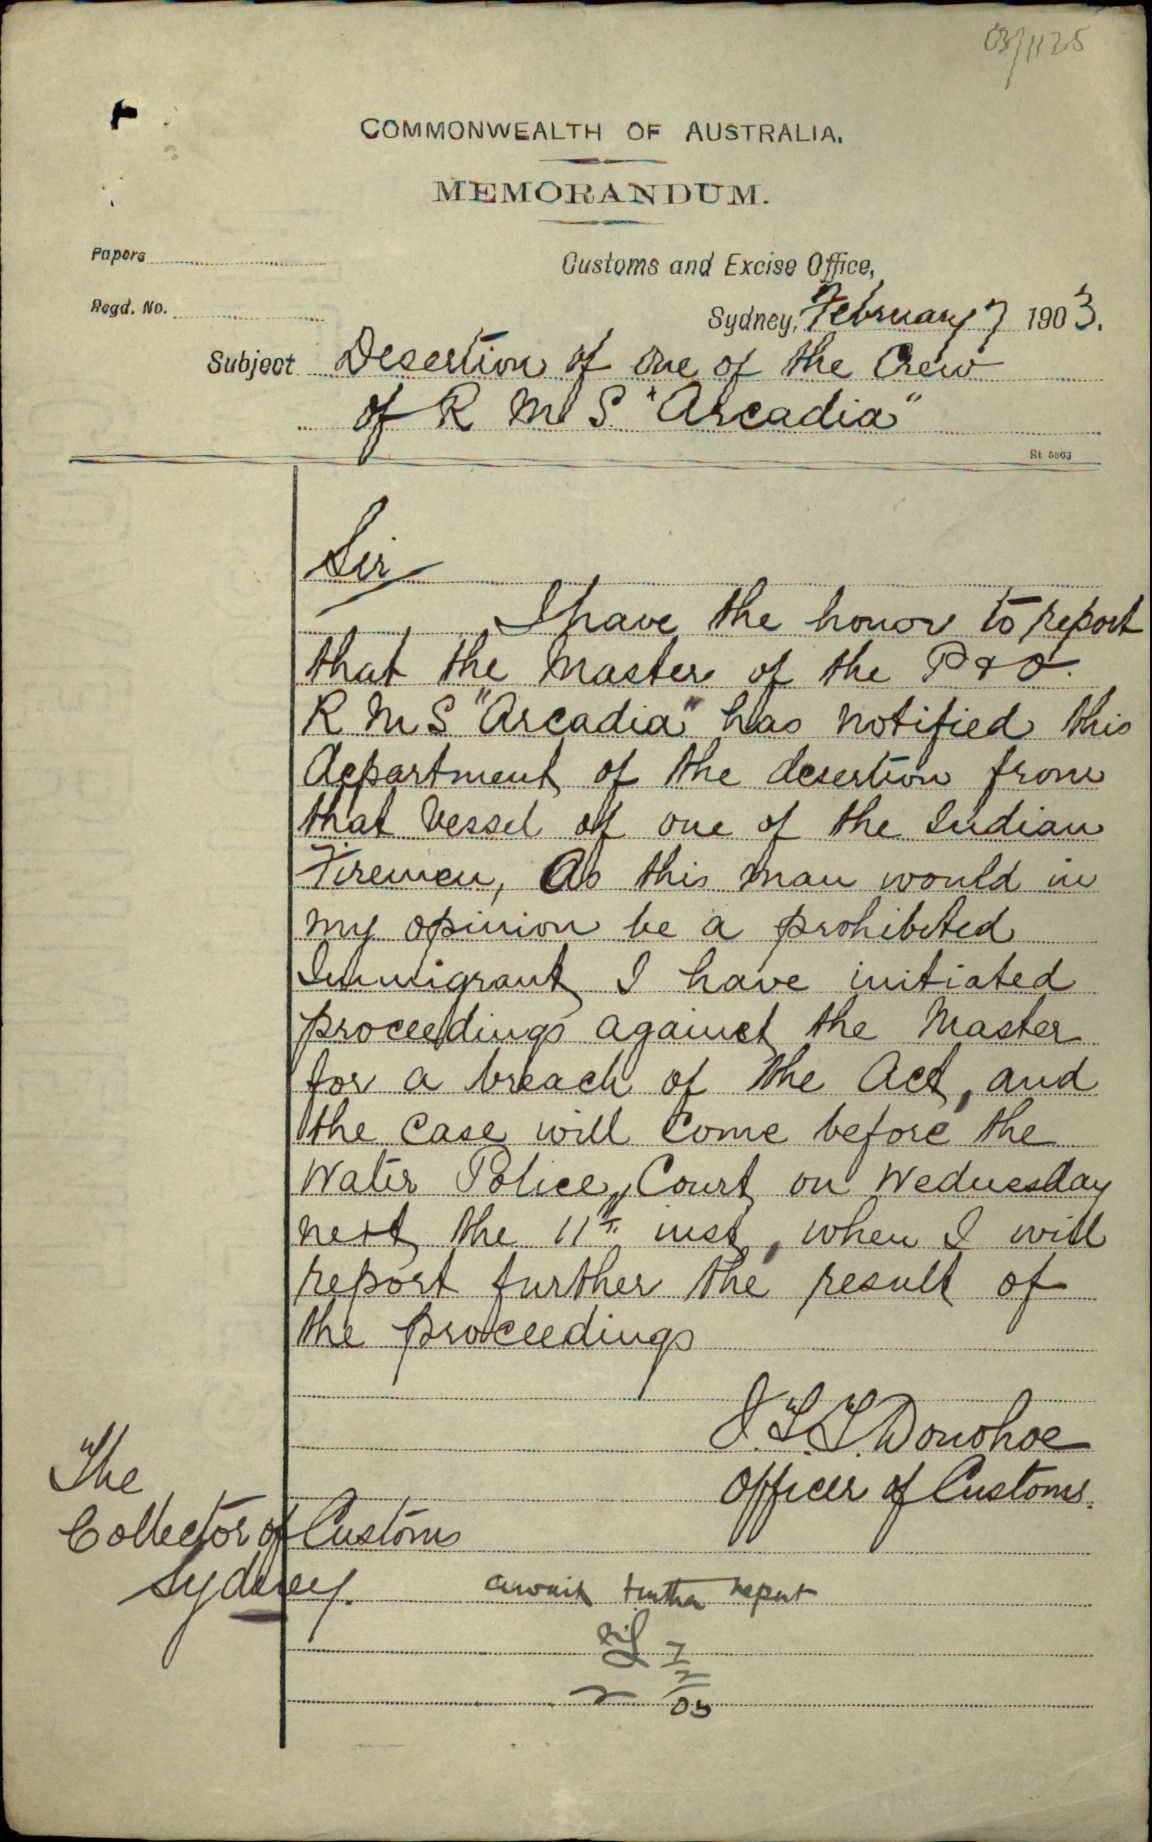 03/1125
COMMONWEALTH OF AUSTRALIA.
MEMORANDUM.
Papers
Customs and Excise Office,
Regd. No.
Sydney, February 7 1903.
Subject Desertion of one of the Crew
of R M S "Arcadia"
St. 5863
Sir
I have the honor to report
that the Master of the P & O.
R M S "Arcadia" has notified this
department of the desertion from
that vessel of one of the Indian
Firemen, As this man would in
my opinion be a prohibited
Immigrant I have initiated
proceedings against the Master
for a breach of the Act, and
the case will come before the
Water Police Court on Wednesday
next the 11th inst, when I will
report further the result of
the proceedings
J. T. T. Donohoe
Officer of Customs.
The
Collector of Customs
Sydney.
await further report
7
2
03